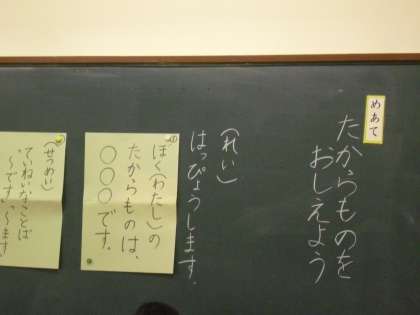 めあて
たからものを
おしえよう
(れい)
はっぴょうします。
①
ぼく(わたし)の
たからものは、
〇〇〇です。
(せつめい)
ていねいなことば
〜です。〜ます